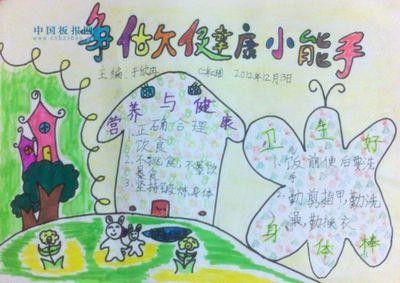 中国板报网
争做健康小能手
主编: 2012年12月13日
营养与健康
1. 正确合理
饮食
2. 不挑食,不暴饮
暴食
3. 坚持锻炼身体
卫生好
1. 饭前便后要洗
手
2. 勤剪指甲,勤洗
澡,勤换衣
身体棒